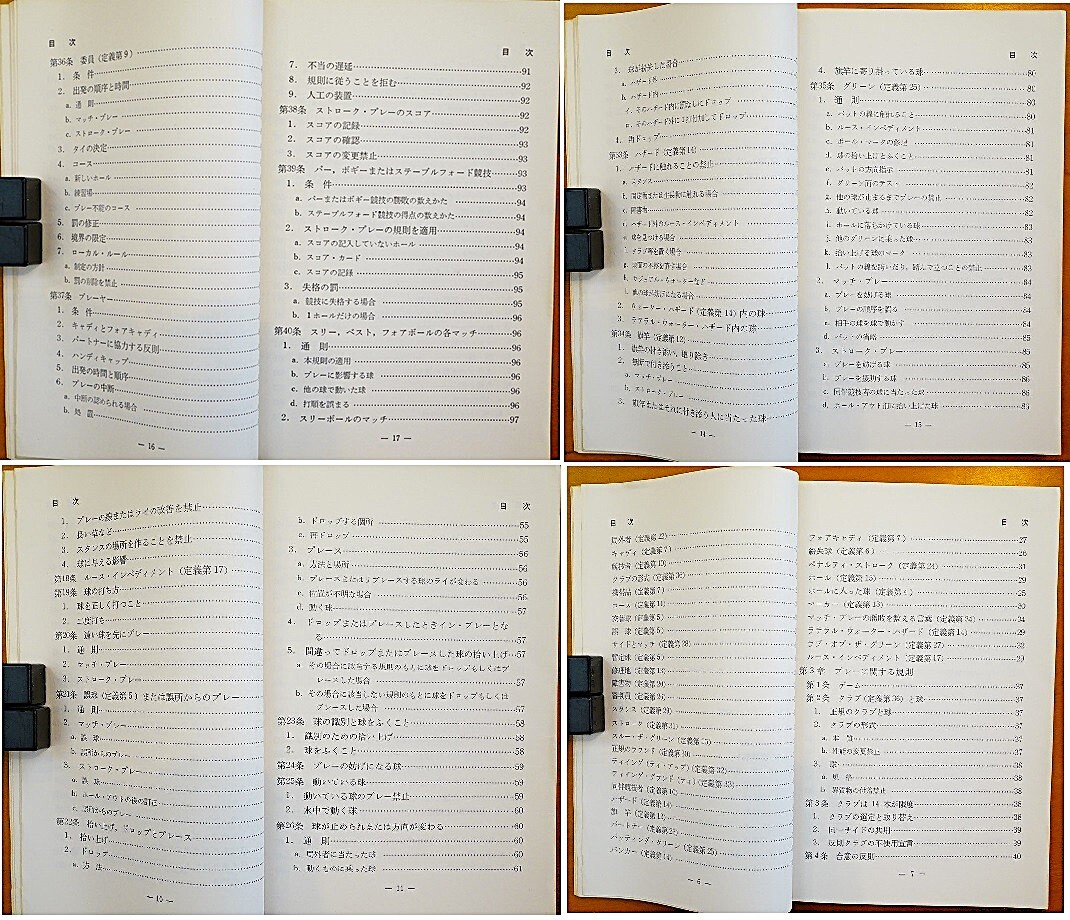 目　次
第36条　委員（定義第9）
1.　条　件
2.　出発の順序と時間
a. 通　則
b. マッチ・プレー
c. ストローク・プレー
3.　タイの決定
4.　コース
a. 新しいホール
b. 練習場
c. プレー不能のコース
5.　罰の修正
6.　境界の限定
7.　ローカル・ルール
a. 制定の方針
b. 罰の削除を禁止
第37条　プレーヤ
1.　条　件
2.　キャディとフォアキャディ
3.　パートナーに協力する反則
4.　ハンディキャップ
5.　出発の時間と順序
6.　プレーの中断
a. 中断の認められる場合
b. 処　置
— 16 —
目　次
7.　不当の遅延 91
8.　規則に従うことを拒む 92
9.　人工の装置 92
第38条　ストローク・プレーのスコア 92
1.　スコアの記録 92
2.　スコアの確認 93
3.　スコアの変更禁止 93
第39条　パー，ボギーまたはステーブルフォード競技 93
1.　条　件 93
a. パーまたはボギー競技の勝敗の数えかた 94
b. ステーブルフォード競技の得点の数えかた 94
2.　ストローク・プレーの規則を適用 94
a. スコアの記入していないホール 94
b. スコア・カード 94
c. スコアの記録 95
3.　失格の罰 95
a. 競技に失格する場合 95
b. 1ホールだけの場合 96
第40条　スリー，ベスト，フォアボールの各マッチ 96
1.　通　則 96
a. 本規則の適用 96
b. プレーに影響する球 96
c. 他の球で動いた球 96
d. 打順を誤まる 96
2.　スリーボールのマッチ 97
— 17 —
目　次
3.　球が紛失した場合
a. ハザード外
b. ハザード内
4.　再ドロップ
第33条　ハザード（定義第14）
1.　ハザードに触れることの禁止
a. スタンス
c. 障害物
d. ハザード外のルース・インペディメント
e. 球を見つける場合
f. クラブ等を置く場合
2.　ウォーター・ハザード（定義第14）内の球
3.　ラテラル・ウォーター・ハザード内の球
第34条　旗竿（定義第12）
1.　旗竿の付き添い，取り除き
2.　無断で付き添うこと
a. マッチ・プレー
b. ストローク・プレー
3.　旗竿またはそれに付き添う人に当たった球
— 14 —
目　次
4.　旗竿に寄り掛っている球 80
第35条　グリーン（定義第25） 80
1.　通　則 80
a. パットの線に触れること 80
b. ルース・インペディメント 81
c. ボール・マークの修理 81
d. 球の拾い上げとふくこと 81
e. パットの方向指示 81
f. グリーン面のテスト 82
g. 他の球が止まるまでプレーの禁止 82
h. 動いている球 82
i. ホールに落ちかけている球 83
j. 他のグリーンに乗った球 83
k. 拾い上げる球のマーク 83
l. パットの線を跨いだり，踏んで立つことの禁止 83
2.　マッチ・プレー 84
a. プレーを妨げる球 84
b. プレーの順序を誤る 84
c. 相手の球を球で動かす 84
d. パットの省略 85
3.　ストローク・プレー 85
a. プレーを妨げる球 85
b. プレーを援助する球 86
c. 同伴競技者の球に当たった球 86
d. ホール・アウト前に拾い上げた球 86
— 15 —
目　次
1.　プレーの線またはライの改善を禁止
2.　長い草など
3.　スタンスの場所を作ることを禁止
4.　球に与える影響
第18条　ルース・インペディメント（定義第17）
第19条　球の打ち方
1.　球を正しく打つこと
2.　二度打ち
第20条　遠い球を先にプレー
1.　通　則
2.　マッチ・プレー
3.　ストローク・プレー
第21条　誤球（定義第5）または誤所からのプレー
1.　通　則
2.　マッチ・プレー
a. 誤　球
b. 誤所からのプレー
3.　ストローク・プレー
a. 誤　球
b. ホール・アウトの後の訂正
c. 誤所からのプレー
第22条　拾い上げ，ドロップとプレース
1.　拾い上げ
2.　ドロップ
a. 方　法
— 10 —
目　次
b. ドロップする個所 55
c. 再ドロップ 55
3.　プレース 56
a. 方法と場所 56
b. プレースまたはリプレースする球のライが変わる 56
c. 位置が不明な場合 56
d. 動く球 57
4.　ドロップまたはプレースしたときイン・プレーとな
る 57
5.　間違ってドロップまたはプレースした球の拾い上げ 57
a その場合に該当する規則のもとに球をドロップもしくはプ
レースした場合 57
b. その場合に該当しない規則のもとに球をドロップもしくは
プレースした場合 57
第23条　球の識別と球をふくこと 58
1.　識別のための拾い上げ 58
2.　球をふくこと 58
第24条　プレーの妨げになる球 59
第25条　動いている球 59
1.　動いている球のプレー禁止 59
2.　水中で動く球 60
第26条　球が止められまたは方向が変わる 60
1.　通　則 60
a. 局外者に当たった球 60
b. 動くものに乗った球 61
— 11 —
目　次
局外者（定義第22）
キャディ（定義第7）
競技者（定義第10）
クラブの形式（定義第36）
携帯品（定義第7）
コース（定義第11）
交替球（定義第5）
誤　球（定義第5）
サイドとマッチ（定義第28）
暫定球（定義第5）
修理地（定義第13）
障害物（定義第20）
審判員（定義第26）
スタンス（定義第29）
ストローク（定義第31）
スルー・ザ・グリーン（定義第35）
正規のラウンド（定義第30）
ティイング（ティ・アップ）（定義第32）
ティイング・グラウンド（ティ）（定義第33）
同伴競技者（定義第10）
ハザード（定義第14）
旗　竿（定義第12）
パートナー（定義第23）
パッティング・グリーン（定義第25）
バンカー（定義第14）
— 6 —
目　次
フォアキャディ（定義第7） 27
紛失球（定義第6） 26
ペナルティ・ストローク（定義第24） 31
ホール（定義第15） 29
ホールに入った球（定義第4） 25
マーカー（定義第13） 30
マッチ・プレーの勝敗を数える言葉（定義第34） 34
ラテラル・ウォーター・ハザード（定義第14） 29
ラブ・オブ・ザ・グリーン（定義第27） 32
ルース・インペディメント（定義第17） 29
第3章　プレーに関する規則
第1条　ゲーム 37
第2条　クラブ（定義第36）と球 37
1.　正規のクラブと球 37
2.　クラブの形式 37
a. 本　質 37
b. 性能の変更禁止 37
3.　球 38
a. 規　格 38
b. 異質物の付着禁止 38
第3条　クラブは14本が限度 38
1.　クラブの選定と取り替え 38
2.　同一サイドの共用 39
3.　反則クラブの不使用宣言 39
第4条　合意の反則 40
— 7 —